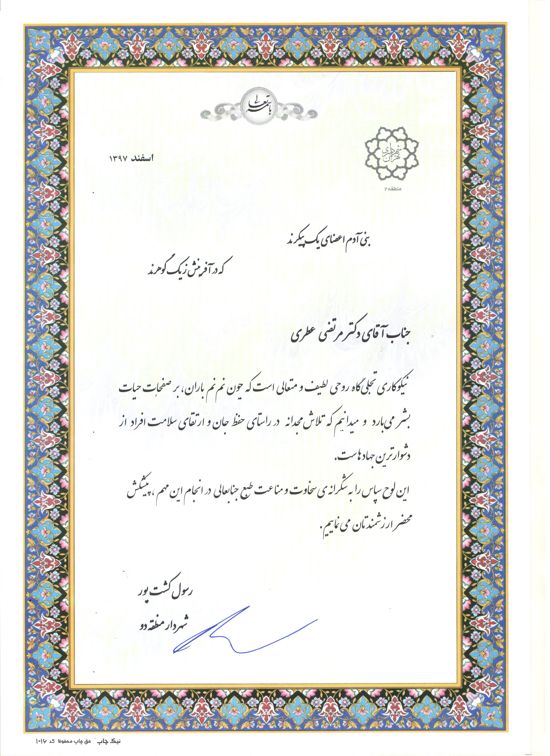 باسمه تعالی
شهرداری تهران
منطقه ۲
اسفند ۱۳۹۷
بنی آدم اعضای یک پیکرند
که در آفرینش ز یک گوهرند
جناب آقای دکتر مرتضی عطری
نیکوکاری تجلی گاه روحی لطیف و متعالی است که چون نم نم باران، بر صفحات حیات
بشر می بارد و میدانیم که تلاش مجدانه در راستای حفظ جان و ارتقای سلامت افراد از
دشوارترین جهادهاست.
این لوح سپاس را به شکرانه ی سخاوت و مناعت طبع جنابعالی در انجام این مهم ، پیشکش
محضر ارزشمندتان می نماییم.
رسول کشت پور
شهردار منطقه دو
نیک چاپ حق چاپ محفوظ کد ۱۰۱۶